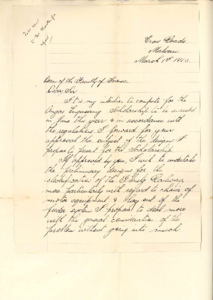 Cross Roads
Malvern
March 1st 19
Dean of the Faculty of Science
Dear Sir
It is my intention to compete for the
Angas Engineering Scholarship to be awarded
in June this year & in accordance with
the regulations I forward for your
approval the subject of the design I
propose to submit for the Scholarship.
If approved by you I will be undertake
the preliminary designs for the
electrification of the Railway
more particularly with regard to choice of
motor equipment & lay out of the
feeder system I propose to deal more
with the general consideration of the
problem without going into much